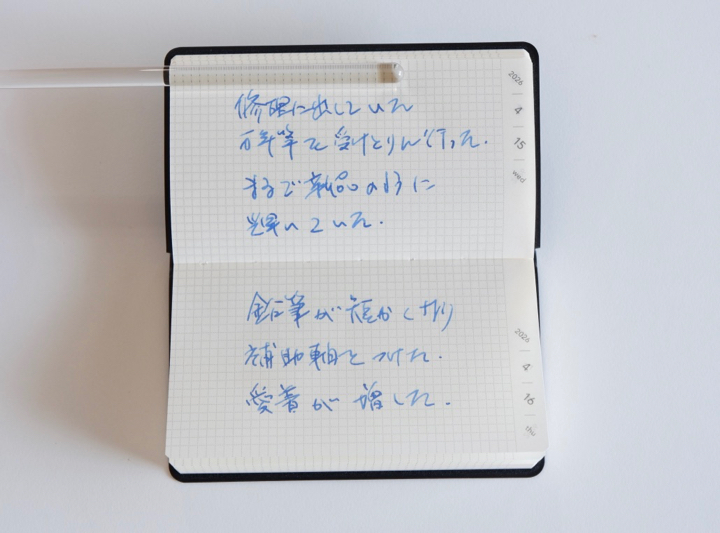 修理に出していた
万年筆を受けとりに行った.
まるで新品のように
輝いていた.
2026
4
15
wed
鉛筆が短かくなり
補助軸をつけた.
愛着が増した.
2026
4
16
thu